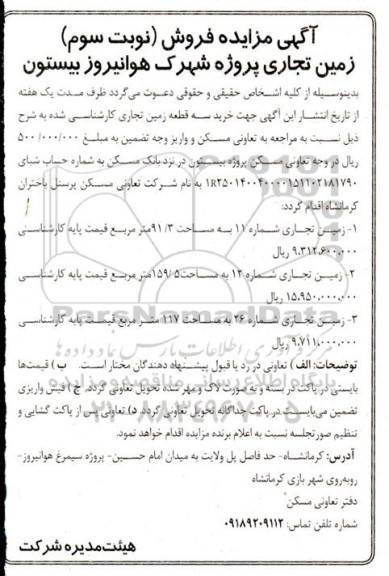 آگهی مزایده فروش (نوبت سوم)
زمین تجاری پروژه شهرک هوانیروز بیستون
بدینوسیله از کلیه اشخاص حقیقی و حقوقی دعوت می‌گردد ظرف مدت یک هفته
از تاریخ انتشار این آگهی جهت خرید سه قطعه زمین تجاری کارشناسی شده به شرح
ذیل نسبت به مراجعه به تعاونی مسکن و واریز وجه تضمین به مبلغ ۵۰۰/۰۰۰/۰۰۰
ریال در وجه تعاونی مسکن پروژه بیستون در نزد بانک مسکن به شماره حساب شبای
IR۲۵۰۱۴۰۰۴۰۰۰۰۱۵۱۱۰۲۱۸۱۷۹۰ به نام شرکت تعاونی مسکن پرسنل باختران
کرمانشاه اقدام گردد:
۱- زمین تجاری شماره ۱۱ به مساحت ۹۱/۳ متر مربع قیمت پایه کارشناسی
۹.۳۱۲.۶۰۰.۰۰۰ ریال
۲- زمین تجاری شماره ۱۲ به مساحت ۱۵۹/۵ متر مربع قیمت پایه کارشناسی
۱۵.۹۵۰.۰۰۰.۰۰۰ ریال
۳- زمین تجاری شماره ۲۶ به مساحت ۱۱۷ متر مربع قیمت پایه کارشناسی
۹.۷۱۱.۰۰۰.۰۰۰ ریال
توضیحات: الف) تعاونی در رد یا قبول پیشنهاد دهندگان مختار است. ب) قیمت‌ها
بایستی در پاکت در بسته و به صورت لاک و مهر شده تحویل تعاونی گردد. ج) فیش واریزی
تضمین می‌بایست در پاکت جداگانه تحویل تعاونی گردد د) تعاونی پس از پاکت گشایی و
تنظیم صورتجلسه نسبت به اعلام برنده مزایده اقدام خواهد نمود.
آدرس: کرمانشاه- حد فاصل پل ولایت به میدان امام حسین- پروژه سیمرغ هوانیروز-
روبه‌روی شهر بازی کرمانشاه
دفتر تعاونی مسکن
شماره تلفن تماس: ۰۹۱۸۹۲۰۹۱۱۲
هیئت مدیره شرکت
ParsNamadData